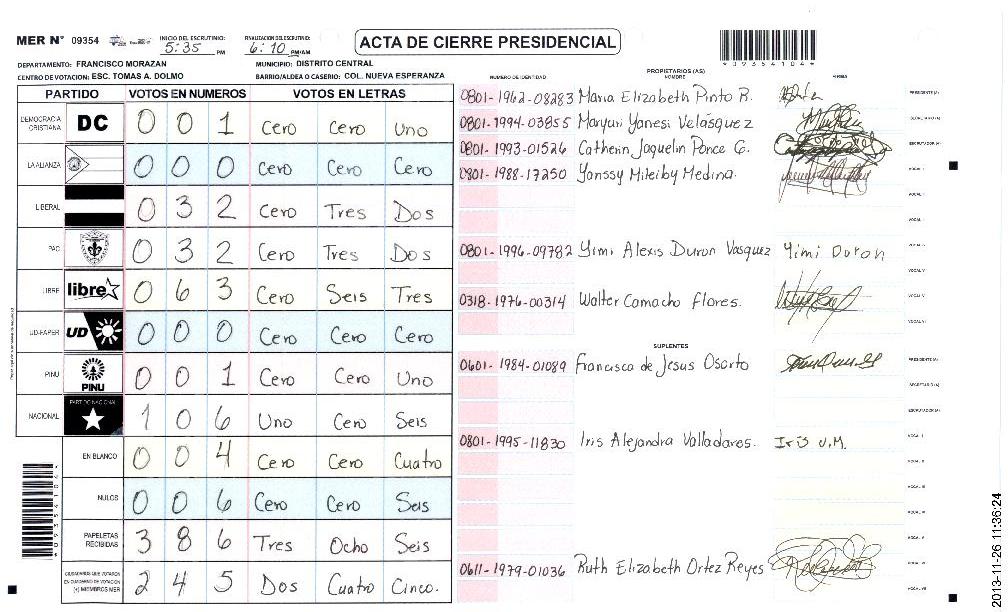 MER N° 09354 INICIO DEL ESCRUTINIO: 5:35 PM FINALIZACION ESCRUTINIO: 6:10 PM/AM ACTA DE CIERRE PRESIDENCIAL
*09354104*
DEPARTAMENTO: FRANCISCO MORAZAN MUNICIPIO: DISTRITO CENTRAL
CENTRO DE VOTACION: ESC. TOMAS A. DOLMO BARRIO/ALDEA O CASERIO: COL. NUEVA ESPERANZA
PARTIDO VOTOS EN NUMEROS VOTOS EN LETRAS
DEMOCRACIA CRISTIANA DC 0 0 1 Cero Cero Uno
LA ALIANZA 0 0 0 Cero Cero Cero
LIBERAL 0 3 2 Cero Tres Dos
PAC 0 3 2 Cero Tres Dos
LIBRE libre 0 6 3 Cero Seis Tres
UD-FAPER UD 0 0 0 Cero Cero Cero
PINU PINU 0 0 1 Cero Cero Uno
NACIONAL PARTIDO NACIONAL 1 0 6 Uno Cero Seis
EN BLANCO 0 0 4 Cero Cero Cuatro
NULOS 0 0 6 Cero Cero Seis
PAPELETAS RECIBIDAS 3 8 6 Tres Ocho Seis
CIUDADANOS QUE VOTARON EN CUADERNO DE VOTACION (+) MIEMBROS MER 2 4 5 Dos Cuatro Cinco.
PROPIETARIOS (AS)
NUMERO DE IDENTIDAD NOMBRE FIRMA
0801-1962-08283 Maria Elizabeth Pinto R. PRESIDENTE (A)
0801-1994-03855 Maryuri Yanesi Velásquez SECRETARIO (A)
0801-1993-01526 Catherin Jaquelin Ponce G. ESCRUTADOR (A)
0801-1988-17250 Yanssy Mileiby Medina. VOCAL I
VOCAL II
0801-1996-09782 Yimi Alexis Duron Vasquez Yimi Duron
VOCAL V
0318-1976-00314 Walter Camacho Flores.
SUPLENTES
0601-1984-01089 Francisca de Jesus Osorto PRESIDENTE (A)
SECRETARIO (A)
ESCRUTADOR (A)
0801-1995-11830 Iris Alejandra Valladares. Iris V.M. VOCAL I
0611-1979-01036 Ruth Elizabeth Ortez Reyes
2013-11-26 11:36:24